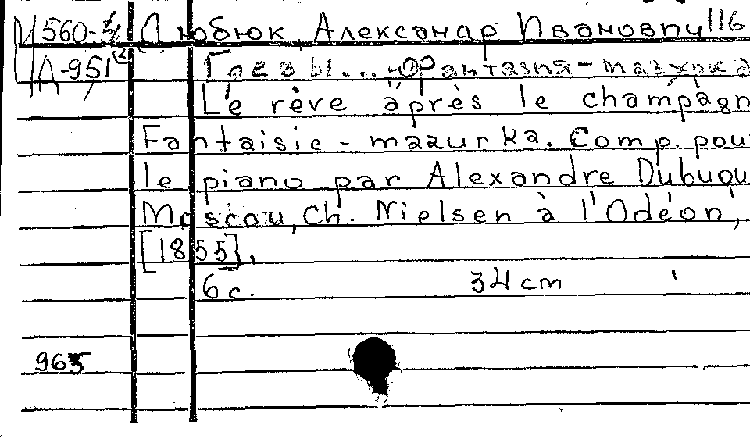 М 560-3/4 Дюбюк, Александр Иванович 116
Д-951 (2) Грезы... Фантазия-мазурка
Le rêve après le champagn
Fantaisie - mazurka. Comp. pou
le piano par Alexandre Dubuqu
Moscou, Ch. Nielsen à l'Odéon,
[1855].
6 с. 34 cm
965